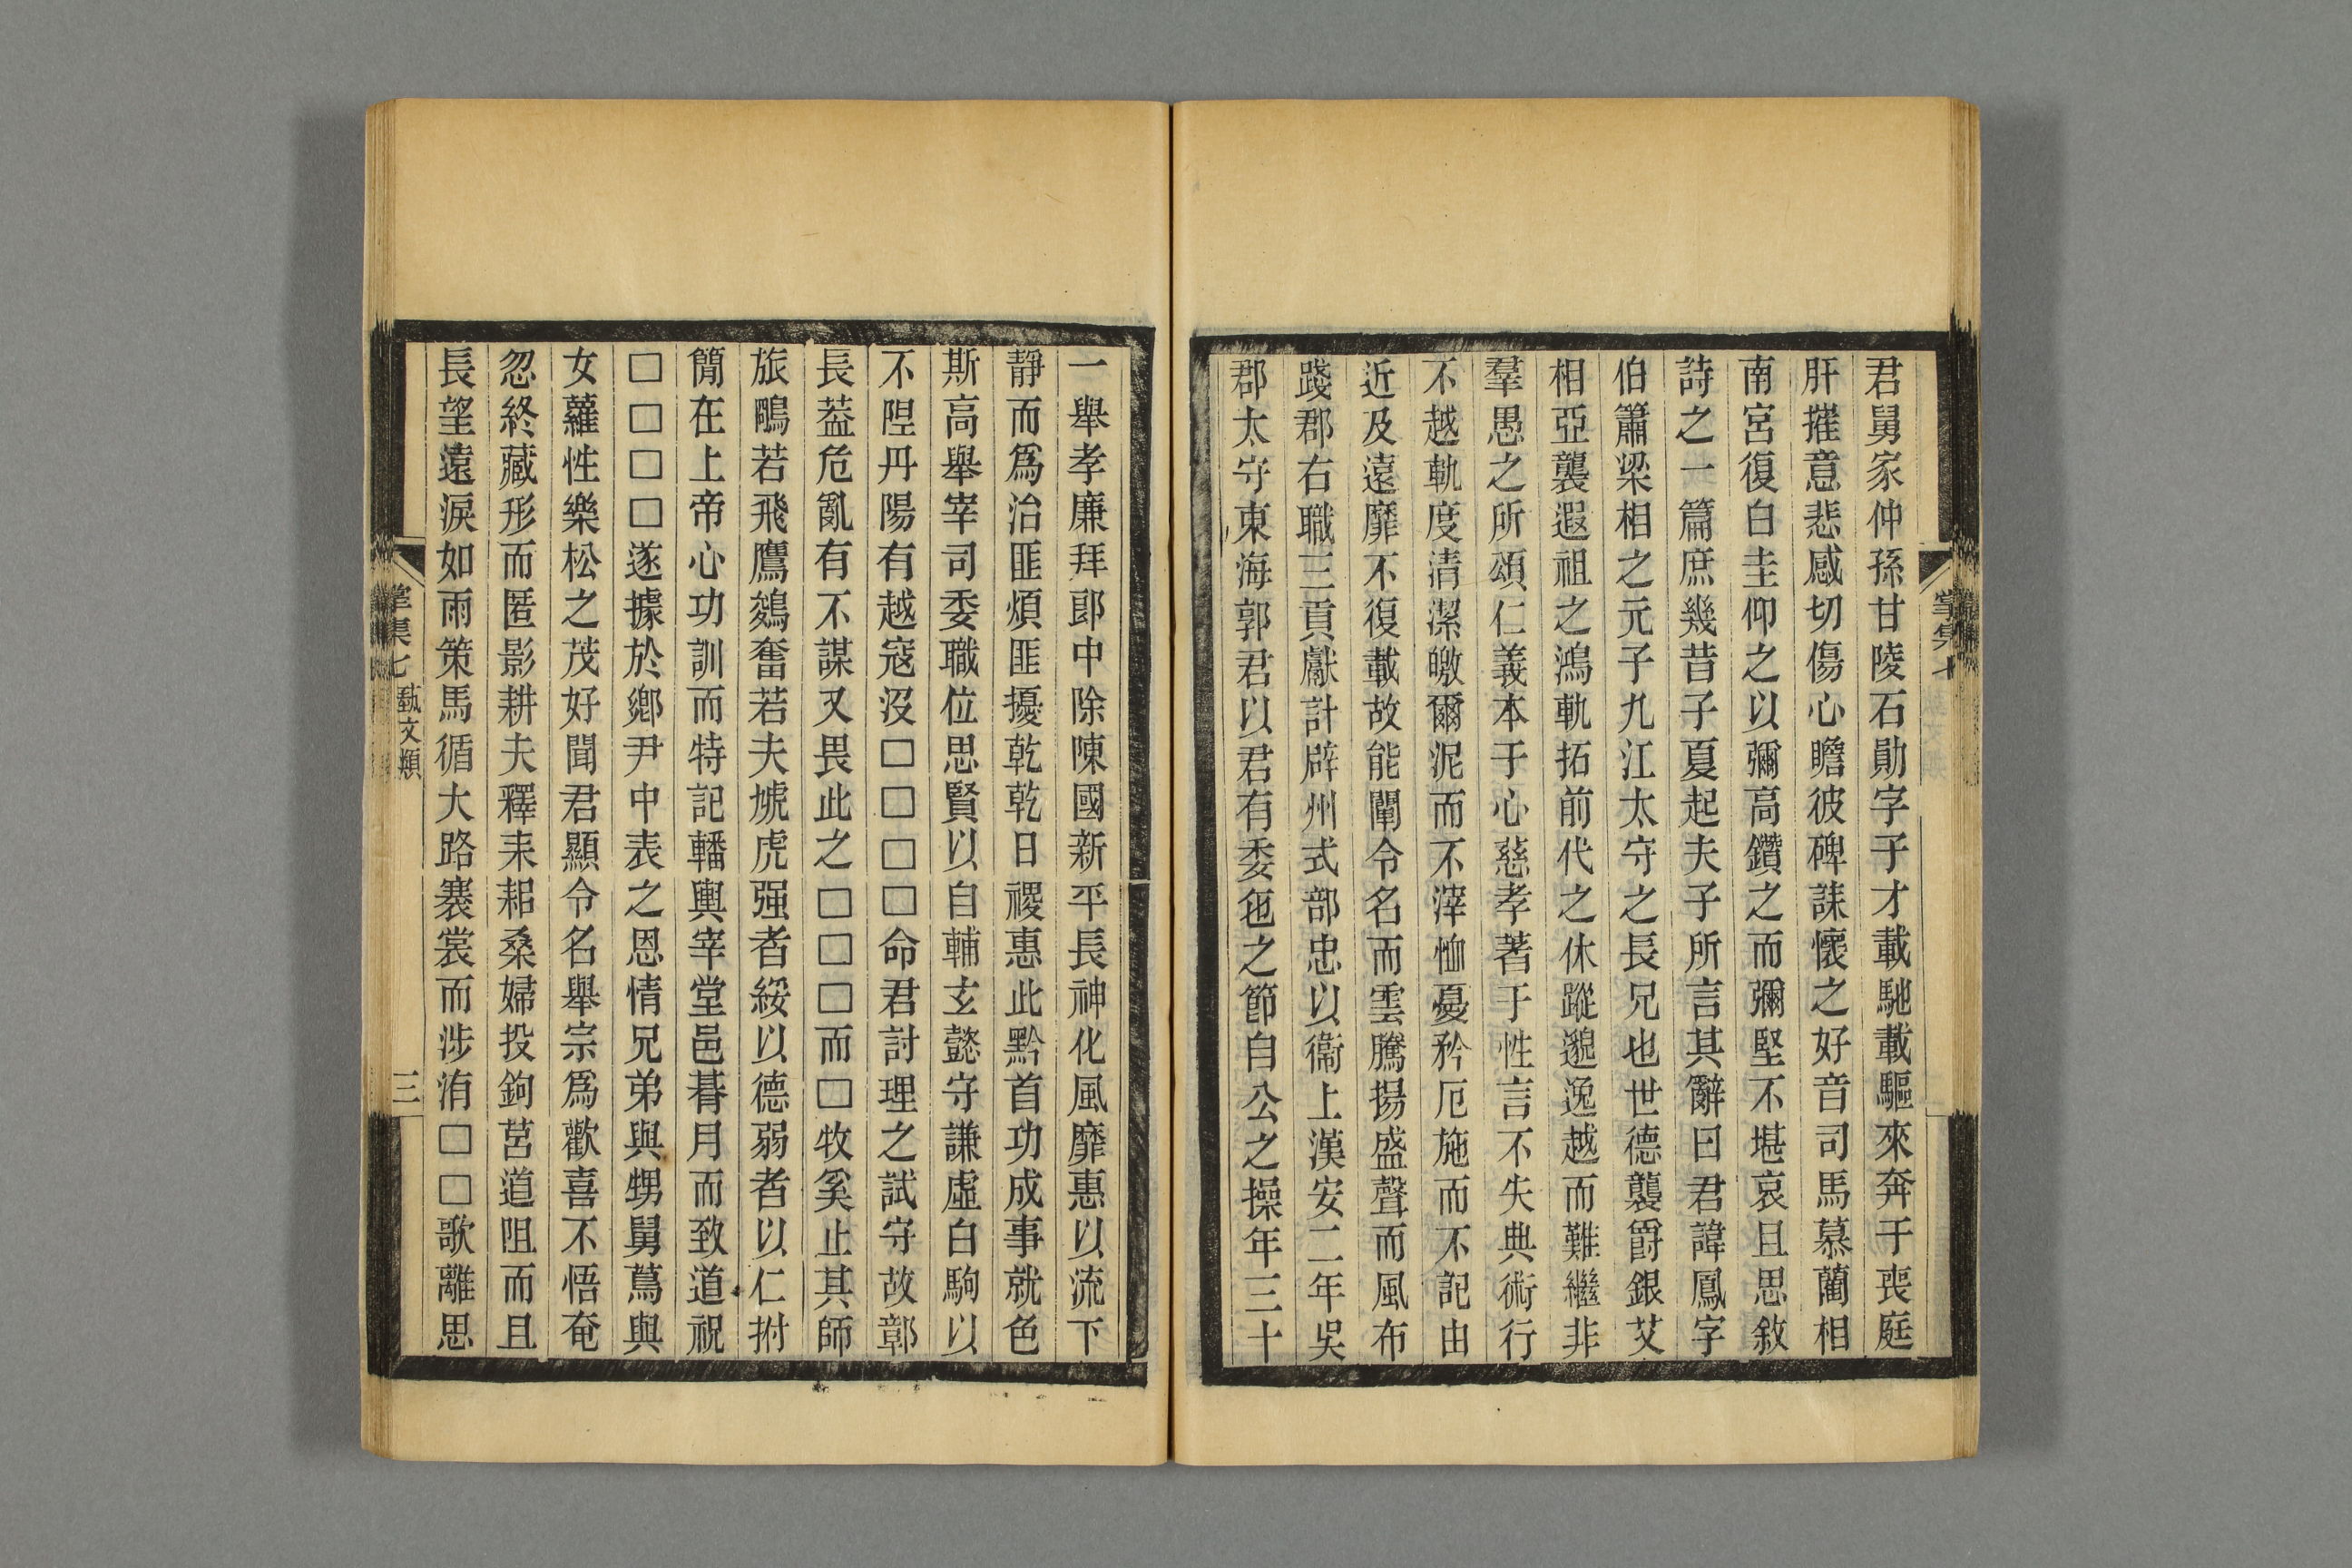 君舅家仲孫甘陵石勛字子才載馳載驅來奔于喪庭
肝摧意悲感切傷心瞻彼碑誄懷之好音司馬慕藺相
南宮復白圭仰之以彌高鑽之而彌堅不堪哀且思敘
詩之一篇庶幾昔子夏起夫子所言其辭曰君諱鳳字
伯簫梁相之元子九江太守之長兄也世德襲爵銀艾
相亞襲遐祖之鴻軌拓前代之休蹤邈逸越而難繼非
羣愚之所頌仁義本于心慈孝著于性言不失典術行
不越軌度清潔皦爾泥而不滓恤憂矜厄施而不記由
近及遠靡不復載故能闡令名而雲騰揚盛聲而風布
踐郡右職三貢獻計辟州式部忠以衞上漢安二年吳
郡太守東海郭君以君有委虵之節自公之操年三十
一舉孝廉拜郎中除陳國新平長神化風靡惠以流下
靜而爲治匪煩匪擾乾乾日禝惠此黔首功成事就色
斯高舉宰司委職位思賢以自輔玄懿守謙虛白駒以
不陞丹陽有越寇沒□□□□命君討理之試守故鄣
長葢危亂有不謀又畏此之□□□而□牧爰止其師
旅鴫若飛鷹鷂奮若夫虓虎强者綏以德弱者以仁拊
簡在上帝心功訓而特記轓輿宰堂邑朞月而致道視
□□□□遂據於鄉尹中表之恩情兄弟與甥舅蔦與
女蘿性樂松之茂好聞君顯令名舉宗爲歡喜不悟奄
忽終藏形而匿影耕夫釋耒耜桑婦投鉤莒道阻而且
長望遠淚如雨策馬循大路褰裳而涉洧□□歌離思
掌集七 藝文類 三